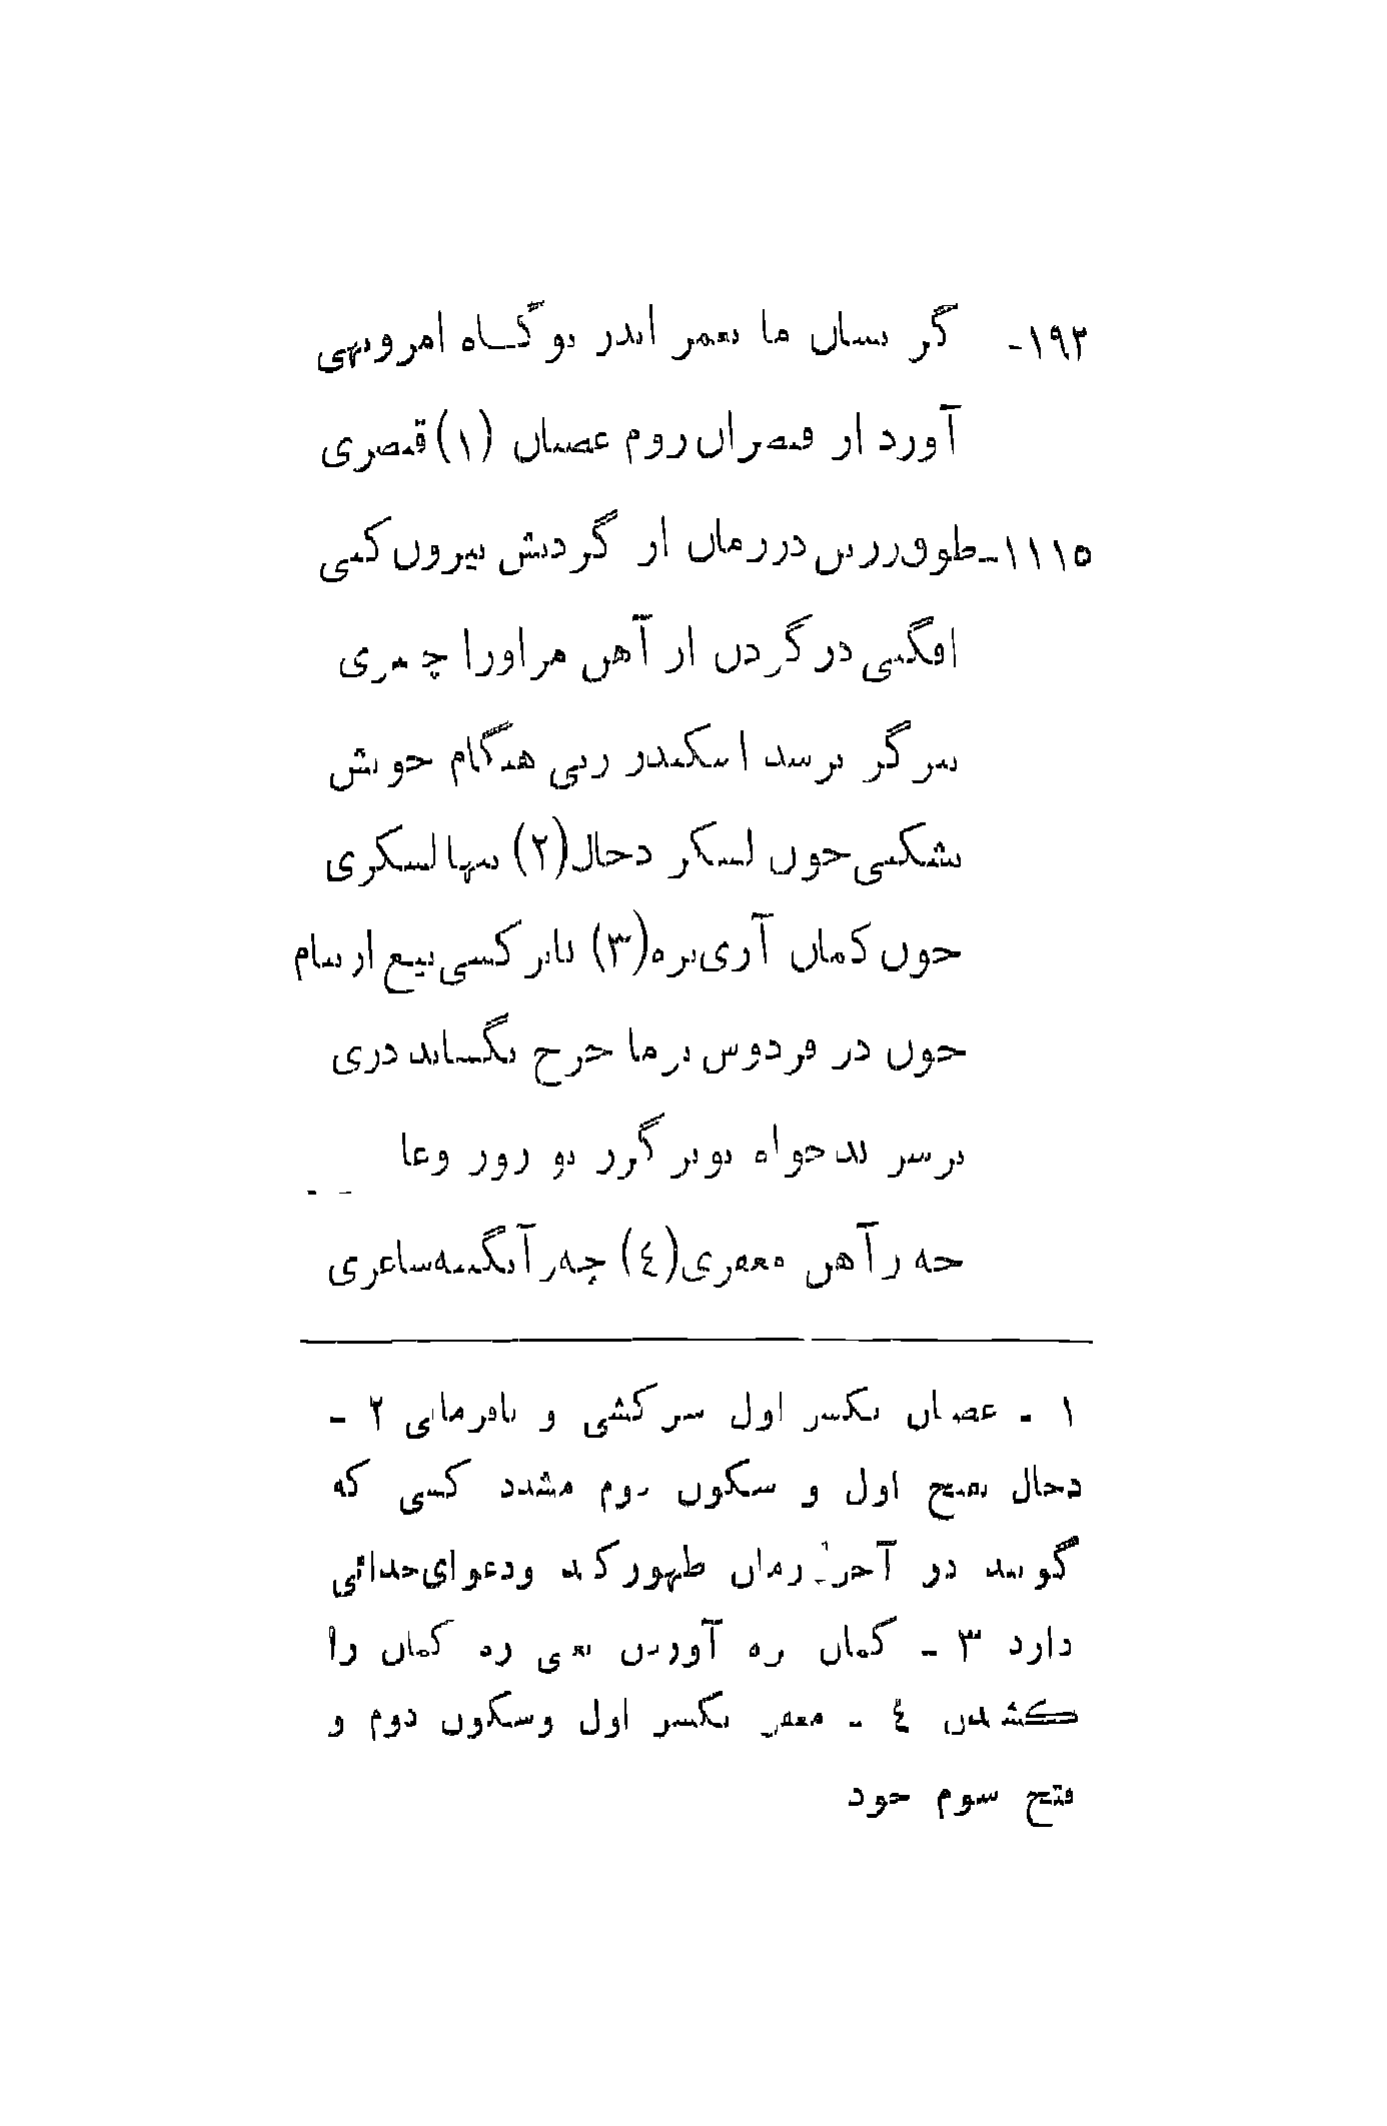 ۱۹۲- گر بسان ما بعمر اندر تو گاه امرونهی
آورد از قیصران روم عصیان (۱) قیصری
۱۱۱۵- طوق زرین در زمان از گردنش بیرون کنی
افکنی در گردن از آهن مر اورا چنبری
سر گر برسد اسکندر هنگام خویش
بشکنی چون لشکر دجال (۲) تنها لشکری
چون کمان آری بزه (۳) تا بر کشی تیغ از نیام
چون در فردوس بر ما چرخ بگشاید دری
بر سر بدخواه تو بر گرز تو روز وغا
چه ز آهن مغفری (۴) چه ز آبگینه ساغری
۱ - عصیان بکسر اول سرکشی و نافرمانی ۲ -
دجال بفتح اول و سکون دوم مشدد کسی که
گویند در آخر زمان ظهور کند و دعوای خدائی
دارد ۳ - کمان بزه آوردن یعنی زه کمان را
کشیدن ٤ - مغفر بکسر اول و سکون دوم و
فتح سوم خود